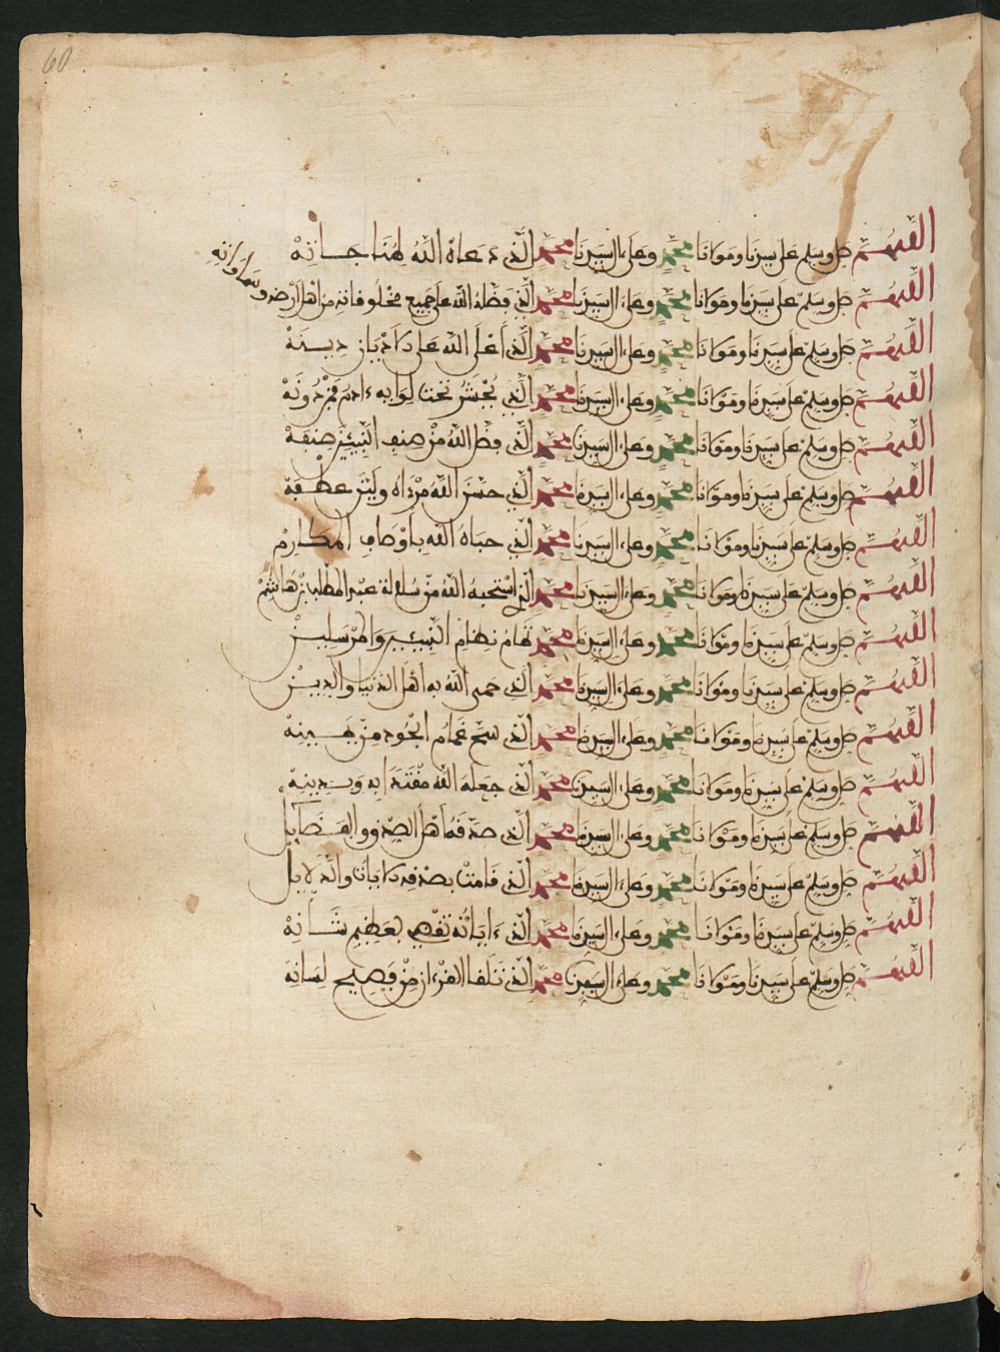 60
اللهم صل وسلم على سيدنا ومولانا محمد وعلى ءال سيدنا محمد الذي دعاه الله لمناجاته
اللهم صل وسلم على سيدنا ومولانا محمد وعلى ءال سيدنا محمد الذي فضله الله على جميع مخلوقاته من أهل أرضه وسماواته
اللهم صل وسلم على سيدنا ومولانا محمد وعلى ءال سيدنا محمد الذي أعلى الله على الاديان دينه
اللهم صل وسلم على سيدنا ومولانا محمد وعلى ءال سيدنا محمد الذي يحشر تحت لوايه ءادم فمن دونه
اللهم صل وسلم على سيدنا ومولانا محمد وعلى ءال سيدنا محمد الذي فضل الله من صنف النبيئين صنفه
اللهم صل وسلم على سيدنا ومولانا محمد وعلى ءال سيدنا محمد الذي حسن الله مرءاه ولين عطفه
اللهم صل وسلم على سيدنا ومولانا محمد وعلى ءال سيدنا محمد الذي حباه الله باوصاف المكارم
اللهم صل وسلم على سيدنا ومولانا محمد وعلى ءال سيدنا محمد الذي انتخبه الله من سلالة عبد المطلب بن هاشم
اللهم صل وسلم على سيدنا ومولانا محمد وعلى ءال سيدنا محمد تمام نظام النبيئين والمرسلين
اللهم صل وسلم على سيدنا ومولانا محمد وعلى ءال سيدنا محمد الذي حمى الله به أهل الدنيا والدين
اللهم صل وسلم على سيدنا ومولانا محمد وعلى ءال سيدنا محمد الذي سح غمام الجود من يمينه
اللهم صل وسلم على سيدنا ومولانا محمد وعلى ءال سيدنا محمد الذي جعله الله مقتدا به وبدينه
اللهم صل وسلم على سيدنا ومولانا محمد وعلى ءال سيدنا محمد الذي صدقه أهل الصدق والفضايل
اللهم صل وسلم على سيدنا ومولانا محمد وعلى ءال سيدنا محمد الذي قامت بصدقه الايات والدلايل
اللهم صل وسلم على سيدنا ومولانا محمد وعلى ءال سيدنا محمد الذي ءاياته تقضي بعظيم شانه
اللهم صل وسلم على سيدنا ومولانا محمد وعلى ءال سيدنا محمد الذي تلقا القرءان من فصيح لسانه